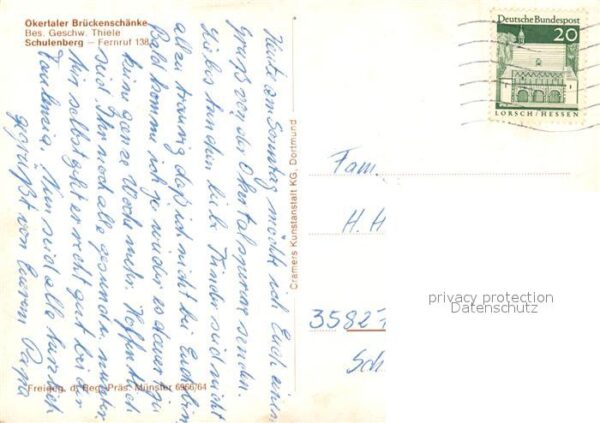 Okertaler Brückenschänke
Bes. Geschw. Thiele
Schulenberg — Fernruf 138
Heute am Sonntag möchte ich Euch einen
Gruß von der Okertalsperre senden.
Liebe Kinder seid nicht
allzu traurig daß ich nicht bei Euch bin.
Bald komme ich ja wieder es dauert ja
keine ganze Woche mehr. Hoffentlich
seid Ihr noch alle gesund u. munter.
Mir selbst geht es recht gut bei der
Nun seid alle herzlich
gegrüßt von Eurem Papa
Freigeg. d. Reg. Präs. Münster 6966/64
Cramers Kunstanstalt KG. Dortmund
Deutsche Bundespost
20
LORSCH/HESSEN
Fam.
H. H
3582
Sch
privacy protection
Datenschutz